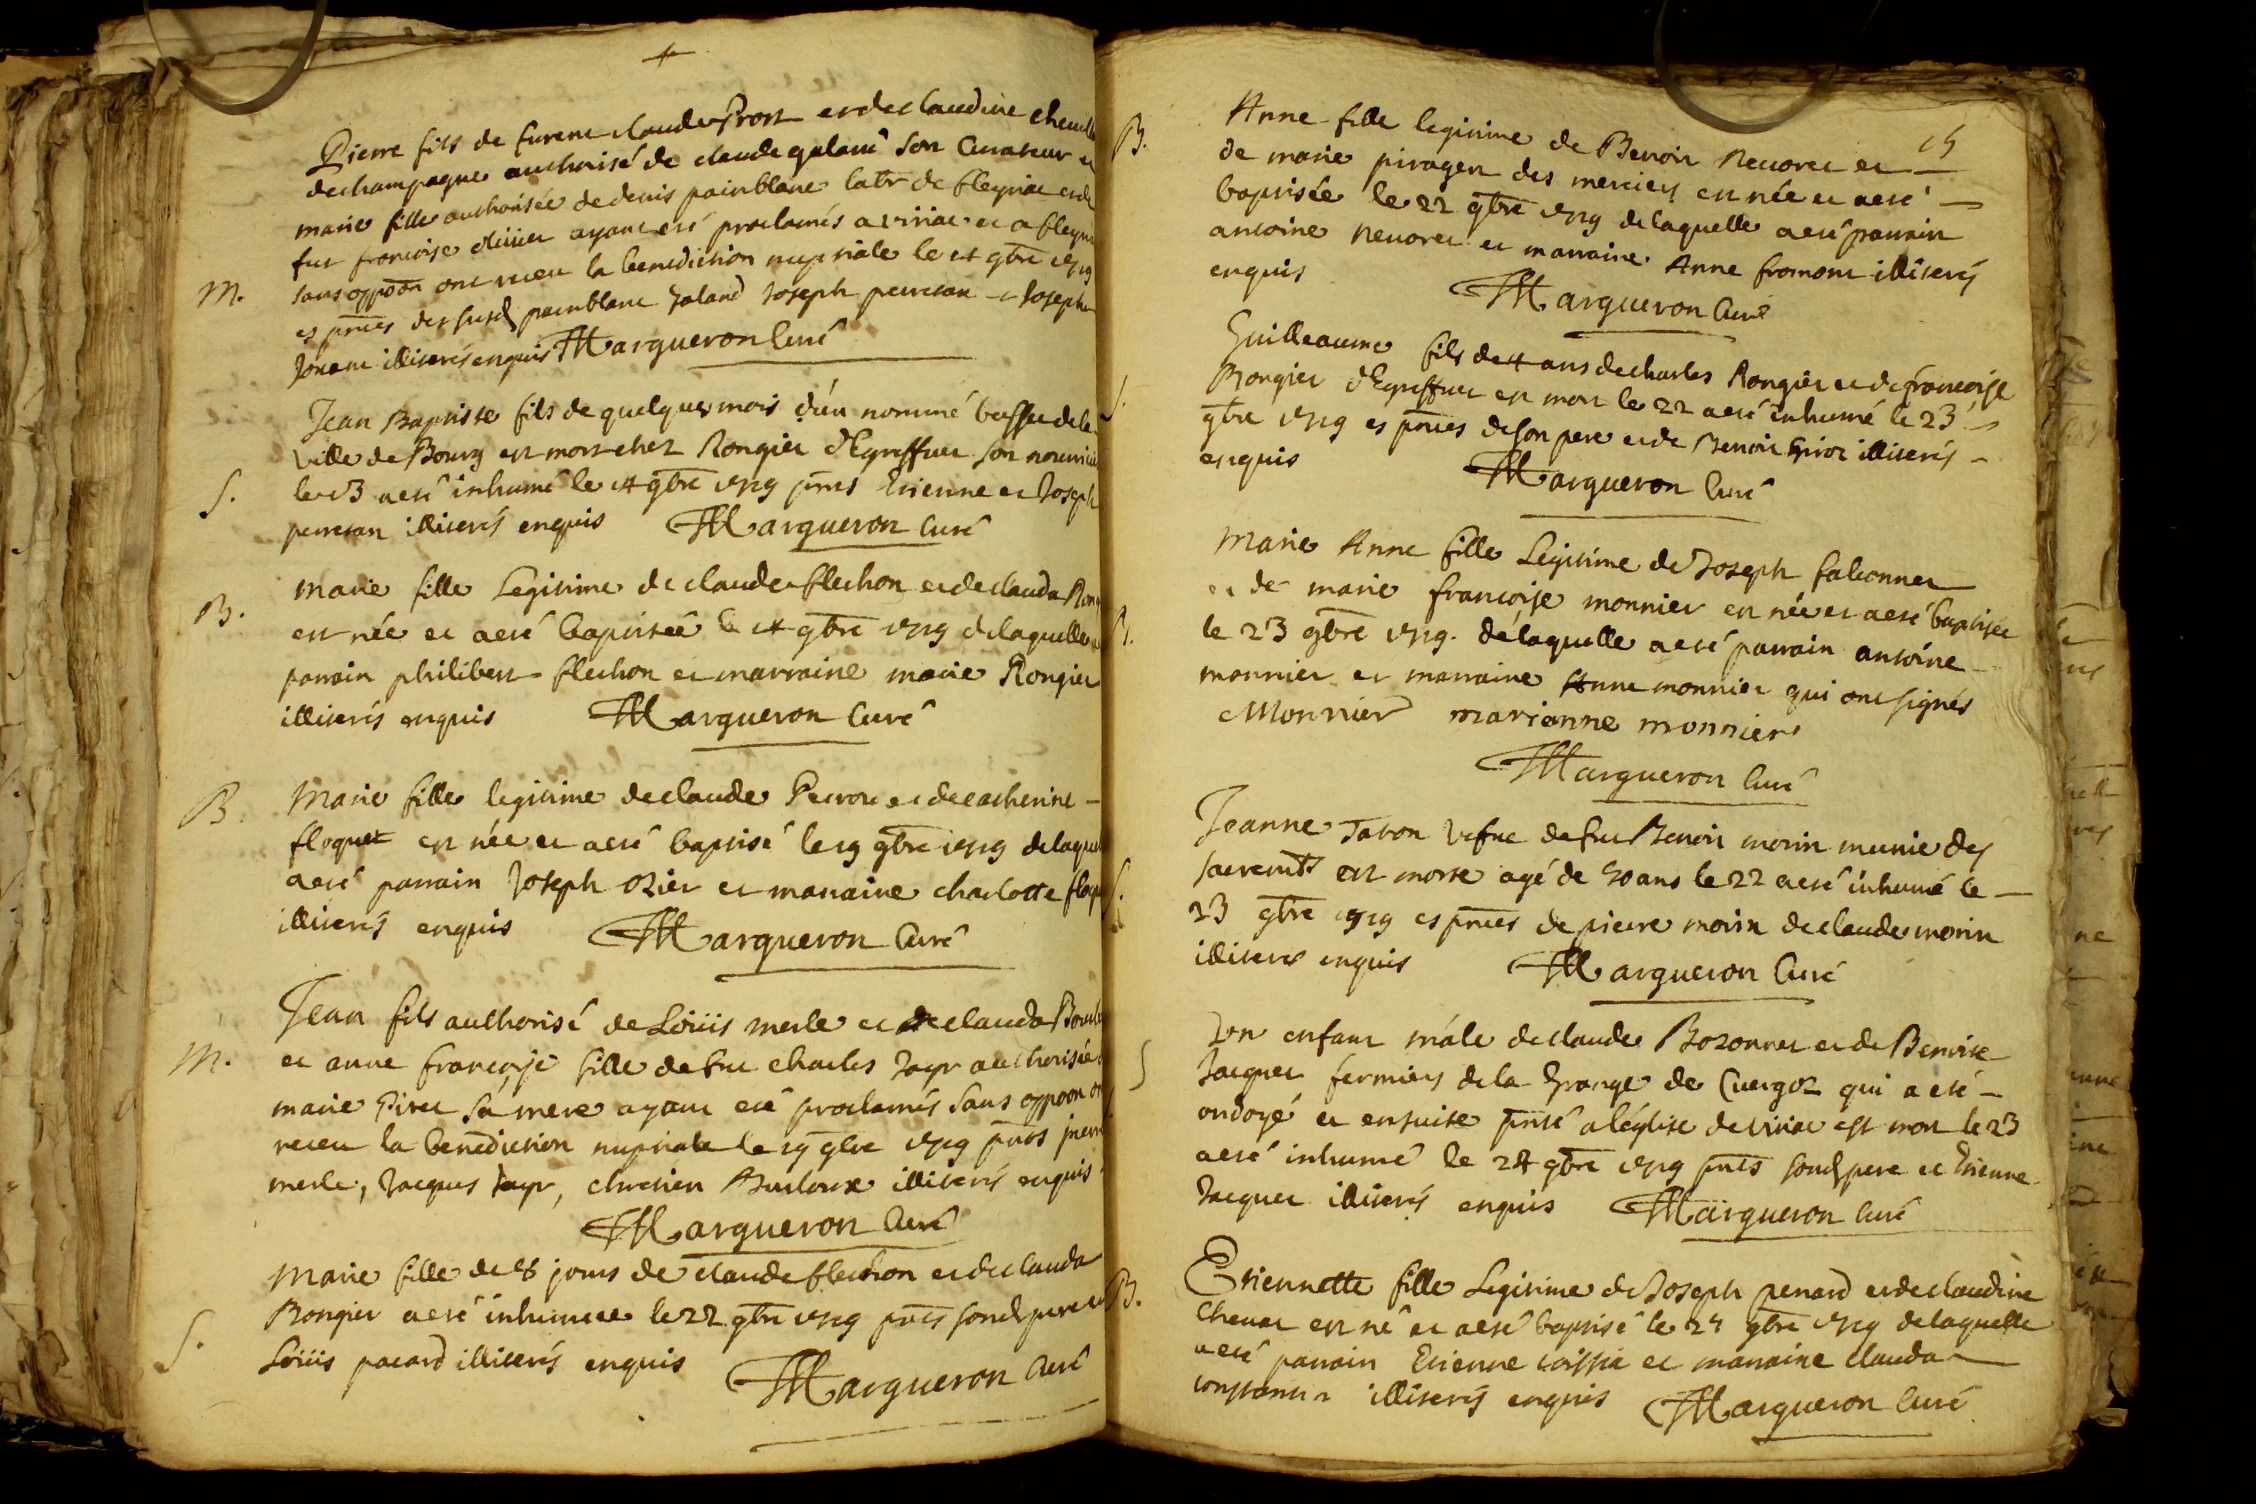 Pierre fils de furent claude Prost et de claudine
de champagne authorisé de claude galand son Curateur et
marie fille authorisée de denis painblanc labr de fleyriac et de
fut francoise ayant eté proclamés a viriac et a
sans oppoon ont receu la benediction nuptiale le 14 gbre 1719
es pntes des susd painblanc galand Joseph perretan et Joseph
illiterés enquis Margueron Curé
M.
Jean Baptiste fils de quelques mois d'un nommé buffet de la
ville de Bourg est mort chez Rongier d'Egreffuet son nourricier
le 13 a eté inhumé le 14 gbre 1719 pnts Etienne et Joseph
perretan illiterés enquis Margueron Curé
S.
Marie fille Legitime de claude flechon et de clauda
est née et a eté baptisée le 14 gbre 1719 de laquelle a
parrain philibert flechon et marraine marie Rongier
illiterés enquis Margueron Curé
B.
Marie fille legitime de claude Perron et de catherine
floquet est née et a eté baptisé le 19 gbre 1719 de laquelle
a eté parrain Joseph ozier et marraine charlotte
illiterés enquis Margueron Curé
B.
Jean fils authorisé de Loüis merle et de clauda
et anne françoise fille de feu charles Jayr authorisée
marie Piret sa mere ayant eté proclamés sans oppoon ont
receu la benediction nuptiale le 19 gbre 1719 pnts
merle, Jacques Jayr, chretien Burloux illiterés enquis
Margueron Curé
M.
Marie fille de 8 jours de claude flechon et de clauda
Rongier a eté inhumée le 22 gbre 1719 pnts sond pere et
Loüis pacard illiterés enquis Margueron Curé
S.
15
B.
Anne fille legitime de Benoit Neuoret et
de marie piroget des merciers est née et a eté
baptisée le 22 gbre 1719 de laquelle a eté parrain
antoine neuoret et marraine Anne fromont illiterés
enquis Margueron Curé
Guilleaume fils de 4 ans de charles Rongier et de francoise
Rongier d'Egreffuet est mort le 22 a eté inhumé le 23
gbre 1719 es pntes de son pere et de Benoit illiterés
enquis Margueron Curé
S.
Marie Anne fille Legitime de Joseph falconnet
et de marie francoise monnier est née et a eté baptisée
le 23 gbre 1719. de laquelle a eté parrain antoine
monnier et marraine Anne monnier qui ont signés
Monnier marianne monnier
Margueron Curé
B.
Jeanne Tavon vefue de feu Benoit morin munie des
sacremts est morte agé de 50 ans le 22 a eté inhumé le
23 gbre 1719 es pntes de pierre morin de claude morin
illiterés enquis Margueron Curé
S.
Un enfant mâle de claude Bozonnet et de Benoite
Jacquet fermiers de la Grange de Cuergoz qui a eté
ondoyé et ensuite pnté a l'églize de viriac est mort le 23
a eté inhumé le 24 gbre 1719 pnts sond pere et Etienne
Jacquet illiterés enquis Margueron Curé
S
Etiennette fille Legitime de Joseph penard et de claudine
cheuat est né et a eté baptisé le 25 gbre 1719 de laquelle
a eté parrain Etienne et marraine clauda
constantin illiterés enquis Margueron Curé
B.